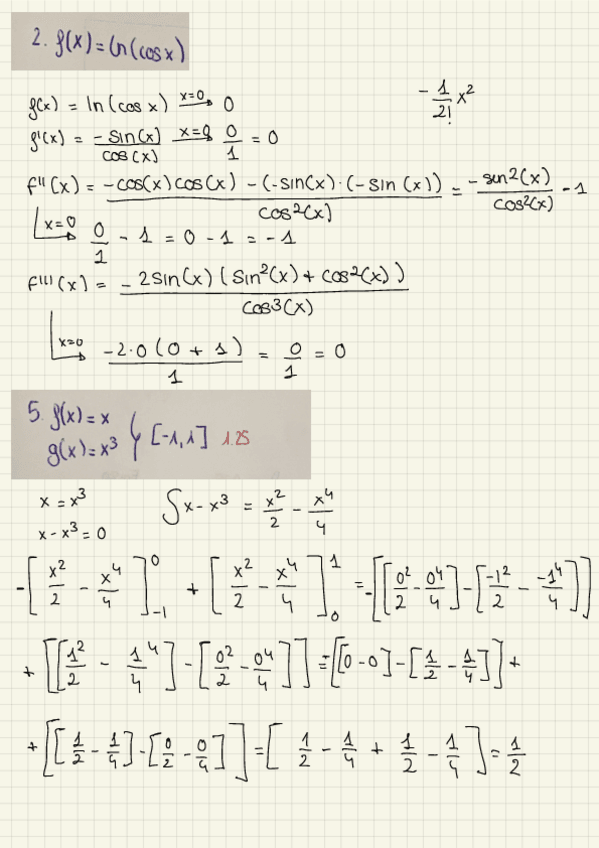 2. f(x) = ln(cosx)
f(x) = ln(cos x) x=0→ 0
-1/2! x²
f'(x) = -sin(x)/cos(x) x=0→ 0/1 = 0
f''(x) = (-cos(x)cos(x) - (-sin(x)·(-sin(x)))/cos²(x) = -sen²(x)/cos²(x) - 1
x=0→ 0/1 - 1 = 0 - 1 = -1
f'''(x) = -2sin(x)(sin²(x) + cos²(x))/cos³(x)
x=0→ -2·0(0 + 1)/1 = 0/1 = 0
5. f(x) = x
g(x) = x³ } [-1,1] 1.25
x = x³ ∫x - x³ = x²/2 - x⁴/4
x - x³ = 0
-[x²/2 - x⁴/4]⁰₋₁ + [x²/2 - x⁴/4]¹₀ = -[[0²/2 - 0⁴/4] - [-1²/2 - -1⁴/4]]
+ [[1²/2 - 1⁴/4] - [0²/2 - 0⁴/4]] = -[[0 - 0] - [1/2 - 1/4]] +
+ [[1/2 - 1/4] - [0/2 - 0/4]] = [1/2 - 1/4 + 1/2 - 1/4] = 1/2